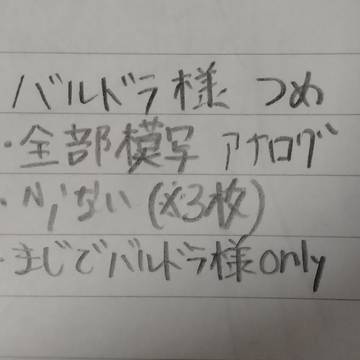 バルドラ様 つめ
・全部模写 アナログ
・ない(※3枚)
・まじでバルドラ様only